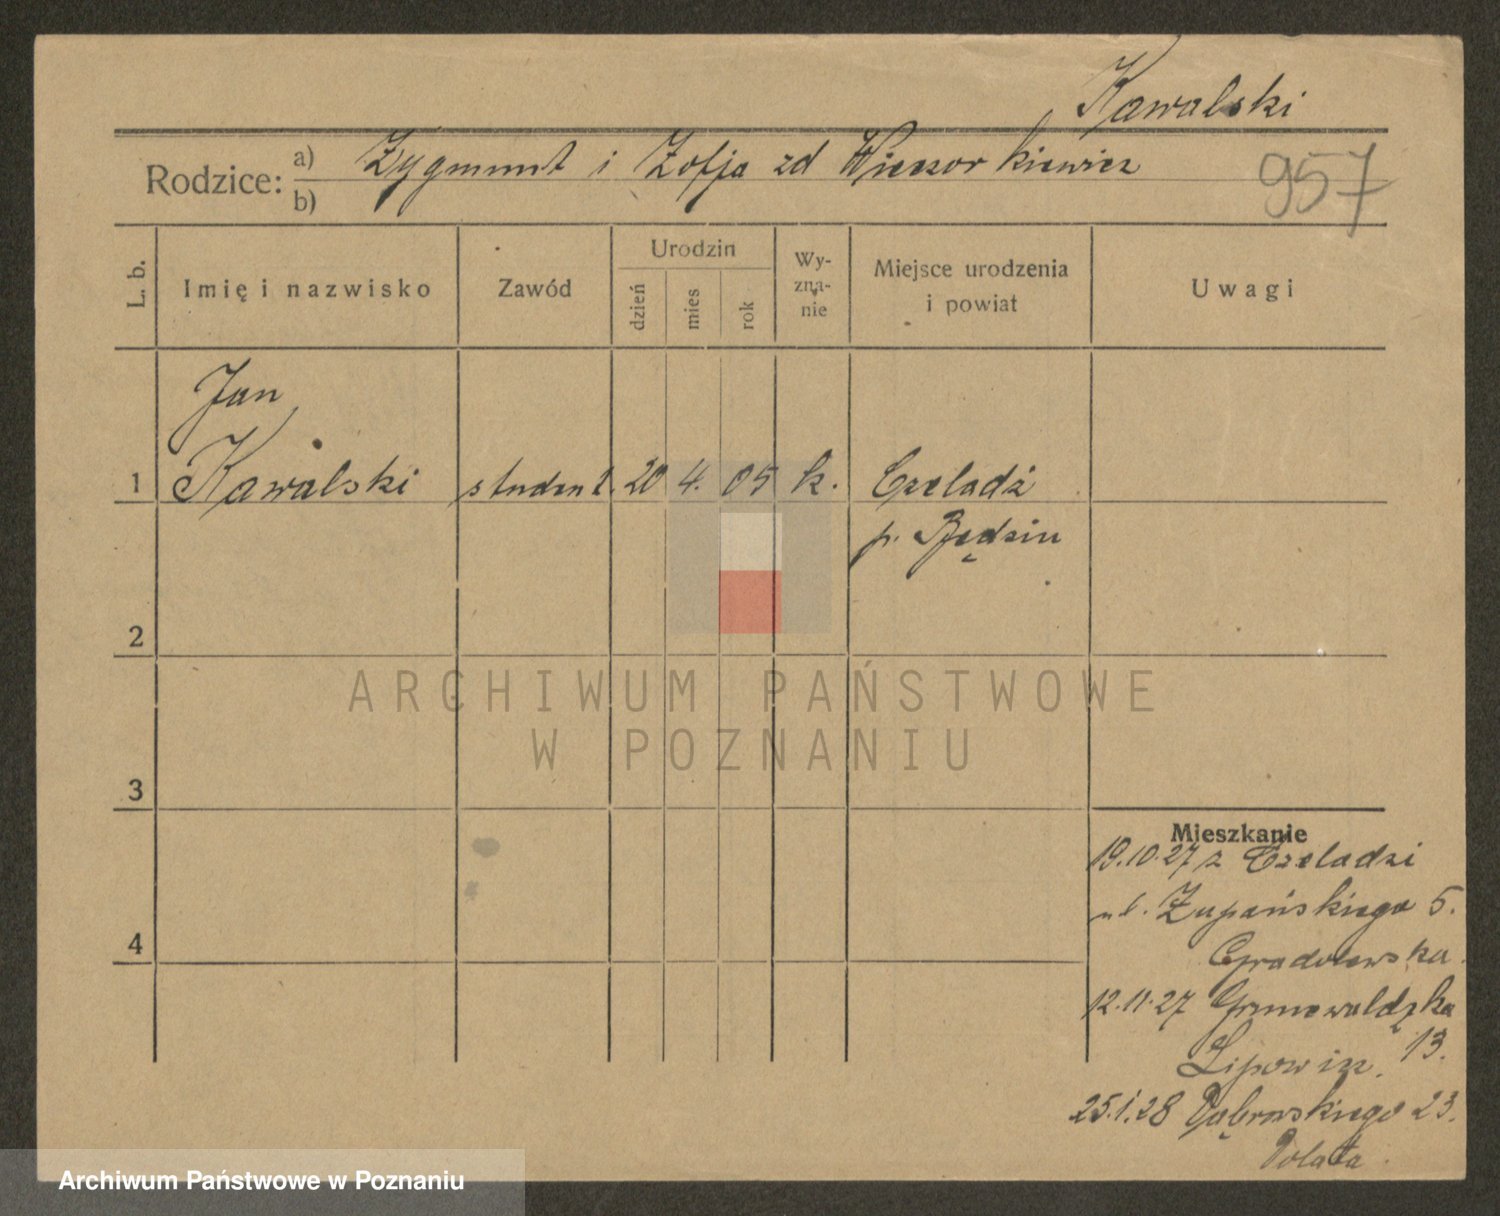 Kawalski
Rodzice: a) Zygmunt i Zofja zd Wieczorkiewicz
b)
957
L. b.
Imię i nazwisko
Zawód
Urodzin
dzień
mies
rok
Wy-
zna-
nie
Miejsce urodzenia
i powiat
Uwagi
Jan
1 Kawalski student. 20 4. 05 k. Czeladź
p. Będzin
2
3
4
Mieszkanie
19.10.27 z Czeladzi
ul. Żupańskiego 5.
12.11.27 Grunwaldzka
13.
25.1.28 Dąbrowskiego 23.
ARCHIWUM PAŃSTWOWE
W POZNANIU
Archiwum Państwowe w Poznaniu